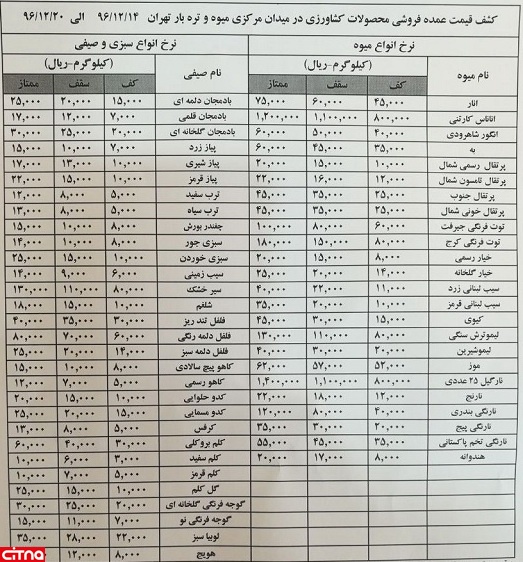 کشف قیمت عمده فروشی محصولات کشاورزی در میدان مرکزی میوه و تره بار تهران ۹۶/۱۲/۱۴ الی ۹۶/۱۲/۲۰
نرخ انواع میوه
(کیلوگرم-ریال)
نام میوه کف سقف ممتاز
انار ۴۵,۰۰۰ ۶۰,۰۰۰ ۷۵,۰۰۰
آناناس کارتنی ۸۰۰,۰۰۰ ۱,۱۰۰,۰۰۰ ۱,۲۰۰,۰۰۰
انگور شاهرودی ۴۰,۰۰۰ ۵۰,۰۰۰ ۶۰,۰۰۰
به ۳۵,۰۰۰ ۴۵,۰۰۰ ۶۰,۰۰۰
پرتقال رسمی شمال ۱۰,۰۰۰ ۱۵,۰۰۰ ۲۰,۰۰۰
پرتقال تامسون شمال ۱۲,۰۰۰ ۱۶,۰۰۰ ۲۲,۰۰۰
پرتقال جنوب ۲۵,۰۰۰ ۳۵,۰۰۰ ۴۵,۰۰۰
پرتقال خونی شمال ۲۵,۰۰۰ ۳۵,۰۰۰ ۴۵,۰۰۰
توت فرنگی جیرفت ۶۰,۰۰۰ ۸۰,۰۰۰ ۱۰۰,۰۰۰
توت فرنگی کرج ۸۰,۰۰۰ ۱۵۰,۰۰۰ ۱۸۰,۰۰۰
خیار رسمی ۸,۰۰۰ ۱۵,۰۰۰ ۲۰,۰۰۰
خیار گلخانه ۱۴,۰۰۰ ۲۰,۰۰۰ ۲۵,۰۰۰
سیب لبنانی زرد ۱۱,۰۰۰ ۲۲,۰۰۰ ۴۰,۰۰۰
سیب لبنانی قرمز ۱۰,۰۰۰ ۲۰,۰۰۰ ۳۵,۰۰۰
کیوی ۱۵,۰۰۰ ۳۰,۰۰۰ ۴۵,۰۰۰
لیموترش سنگی ۸۰,۰۰۰ ۱۱۰,۰۰۰ ۱۳۰,۰۰۰
لیموشیرین ۲۰,۰۰۰ ۳۰,۰۰۰ ۴۰,۰۰۰
موز ۵۲,۰۰۰ ۵۷,۰۰۰ ۶۲,۰۰۰
نارگیل ۲۵ عددی ۸۰۰,۰۰۰ ۱,۱۰۰,۰۰۰ ۱,۴۰۰,۰۰۰
نارنج ۱۲,۰۰۰ ۱۸,۰۰۰ ۲۲,۰۰۰
نارنگی بندری ۴۰,۰۰۰ ۸۰,۰۰۰ ۱۲۰,۰۰۰
نارنگی پیج ۲۰,۰۰۰ ۳۰,۰۰۰ ۳۵,۰۰۰
نارنگی تخم پاکستانی ۳۵,۰۰۰ ۴۵,۰۰۰ ۵۵,۰۰۰
هندوانه ۸,۰۰۰ ۱۷,۰۰۰ ۲۰,۰۰۰
نرخ انواع سبزی و صیفی
(کیلوگرم-ریال)
نام صیفی کف سقف ممتاز
بادمجان دلمه ای ۱۵,۰۰۰ ۲۰,۰۰۰ ۲۵,۰۰۰
بادمجان قلمی ۷,۰۰۰ ۱۲,۰۰۰ ۱۷,۰۰۰
بادمجان گلخانه ای ۲۰,۰۰۰ ۲۵,۰۰۰ ۳۰,۰۰۰
پیاز زرد ۷,۰۰۰ ۱۰,۰۰۰ ۱۵,۰۰۰
پیاز شیری ۱۰,۰۰۰ ۱۳,۰۰۰ ۱۷,۰۰۰
پیاز قرمز ۱۰,۰۰۰ ۱۵,۰۰۰ ۲۲,۰۰۰
ترب سفید ۵,۰۰۰ ۸,۰۰۰ ۱۲,۰۰۰
ترب سیاه ۵,۰۰۰ ۸,۰۰۰ ۱۳,۰۰۰
چغندر بورش ۸,۰۰۰ ۱۰,۰۰۰ ۱۵,۰۰۰
سبزی جور ۸,۰۰۰ ۱۰,۰۰۰ ۱۴,۰۰۰
سبزی خوردن ۱۰,۰۰۰ ۱۵,۰۰۰ ۲۵,۰۰۰
سیب زمینی ۶,۰۰۰ ۹,۰۰۰ ۱۴,۰۰۰
سیر خشک ۸۰,۰۰۰ ۱۱۰,۰۰۰ ۱۳۰,۰۰۰
شلغم ۱۰,۰۰۰ ۱۵,۰۰۰ ۱۸,۰۰۰
فلفل تند ریز ۳۰,۰۰۰ ۳۵,۰۰۰ ۴۰,۰۰۰
فلفل دلمه رنگی ۶۰,۰۰۰ ۷۰,۰۰۰ ۸۰,۰۰۰
فلفل دلمه سبز ۱۴,۰۰۰ ۲۰,۰۰۰ ۲۵,۰۰۰
کاهو پیچ سالادی ۸,۰۰۰ ۱۰,۰۰۰ ۱۵,۰۰۰
کاهو رسمی ۵,۰۰۰ ۷,۰۰۰ ۱۲,۰۰۰
کدو حلوایی ۱۰,۰۰۰ ۱۵,۰۰۰ ۲۰,۰۰۰
کدو مسمایی ۱۵,۰۰۰ ۲۰,۰۰۰ ۲۵,۰۰۰
کرفس ۵,۰۰۰ ۸,۰۰۰ ۱۳,۰۰۰
کلم بروکلی ۳۰,۰۰۰ ۴۰,۰۰۰ ۶۰,۰۰۰
کلم سفید ۳,۰۰۰ ۶,۰۰۰ ۱۰,۰۰۰
کلم قرمز ۵,۰۰۰ ۷,۰۰۰ ۱۰,۰۰۰
گل کلم ۱۰,۰۰۰ ۱۵,۰۰۰ ۲۵,۰۰۰
گوجه فرنگی گلخانه ای ۲۰,۰۰۰ ۲۵,۰۰۰ ۳۰,۰۰۰
گوجه فرنگی نو ۷,۰۰۰ ۱۱,۰۰۰ ۱۵,۰۰۰
لوبیا سبز ۲۲,۰۰۰ ۲۸,۰۰۰ ۳۵,۰۰۰
هویج ۸,۰۰۰ ۱۲,۰۰۰
CITNA